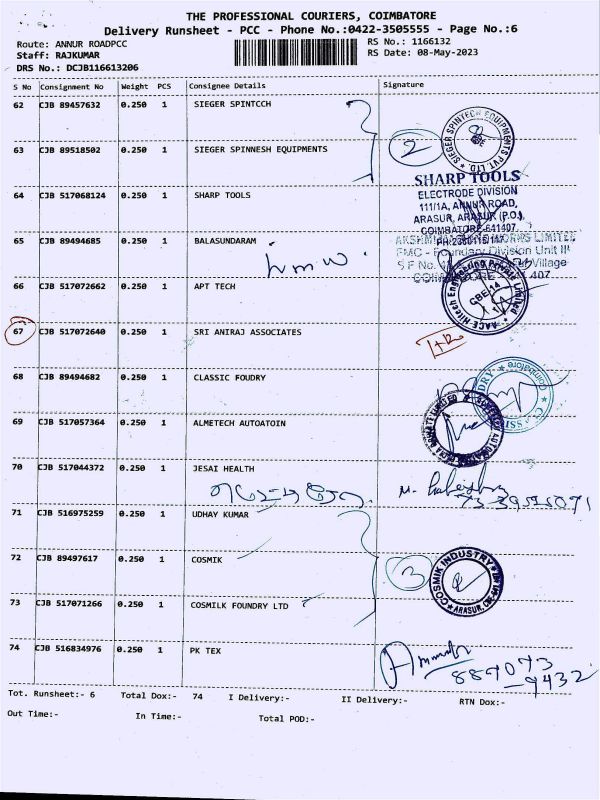 THE PROFESSIONAL COURIERS, COIMBATORE
Delivery Runsheet - PCC - Phone No.:0422-3505555 - Page No.:6
Route: ANNUR ROADPCC RS No.: 1166132
Staff: RAJKUMAR RS Date: 08-May-2023
DRS No.: DCJB116613206
S No Consignment No Weight PCS Consignee Details Signature
62 CJB 89457632 0.250 1 SIEGER SPINTCCH
63 CJB 89518502 0.250 1 SIEGER SPINNESH EQUIPMENTS
2
SIEGER SPINTECH EQUIPMENTS PVT. LTD.
SHARP TOOLS
ELECTRODE DIVISION
111/1A, ANNUR ROAD,
ARASUR, ARASUR (P.O.),
COIMBATORE-641407.
64 CJB 517068124 0.250 1 SHARP TOOLS
65 CJB 89494685 0.250 1 BALASUNDARAM
WORKS LIMITED
FMC - Foundary Division Unit III
S F No. Village
407
66 CJB 517072662 0.250 1 APT TECH
AACE Hitech Engineering Private Limited
CBE-14
67 CJB 517072640 0.250 1 SRI ANIRAJ ASSOCIATES
68 CJB 89494682 0.250 1 CLASSIC FOUDRY
Coimbatore
69 CJB 517057364 0.250 1 ALMETECH AUTOATOIN
70 CJB 517044372 0.250 1 JESAI HEALTH
71 CJB 516975259 0.250 1 UDHAY KUMAR
72 CJB 89497617 0.250 1 COSMIK
3
COSMIK INDUSTRY
ARASUR, CBE
73 CJB 517071266 0.250 1 COSMILK FOUNDRY LTD
74 CJB 516834976 0.250 1 PK TEX
889073
9432
Tot. Runsheet:- 6 Total Dox:- 74 I Delivery:- II Delivery:- RTN Dox:-
Out Time:- In Time:- Total POD:-